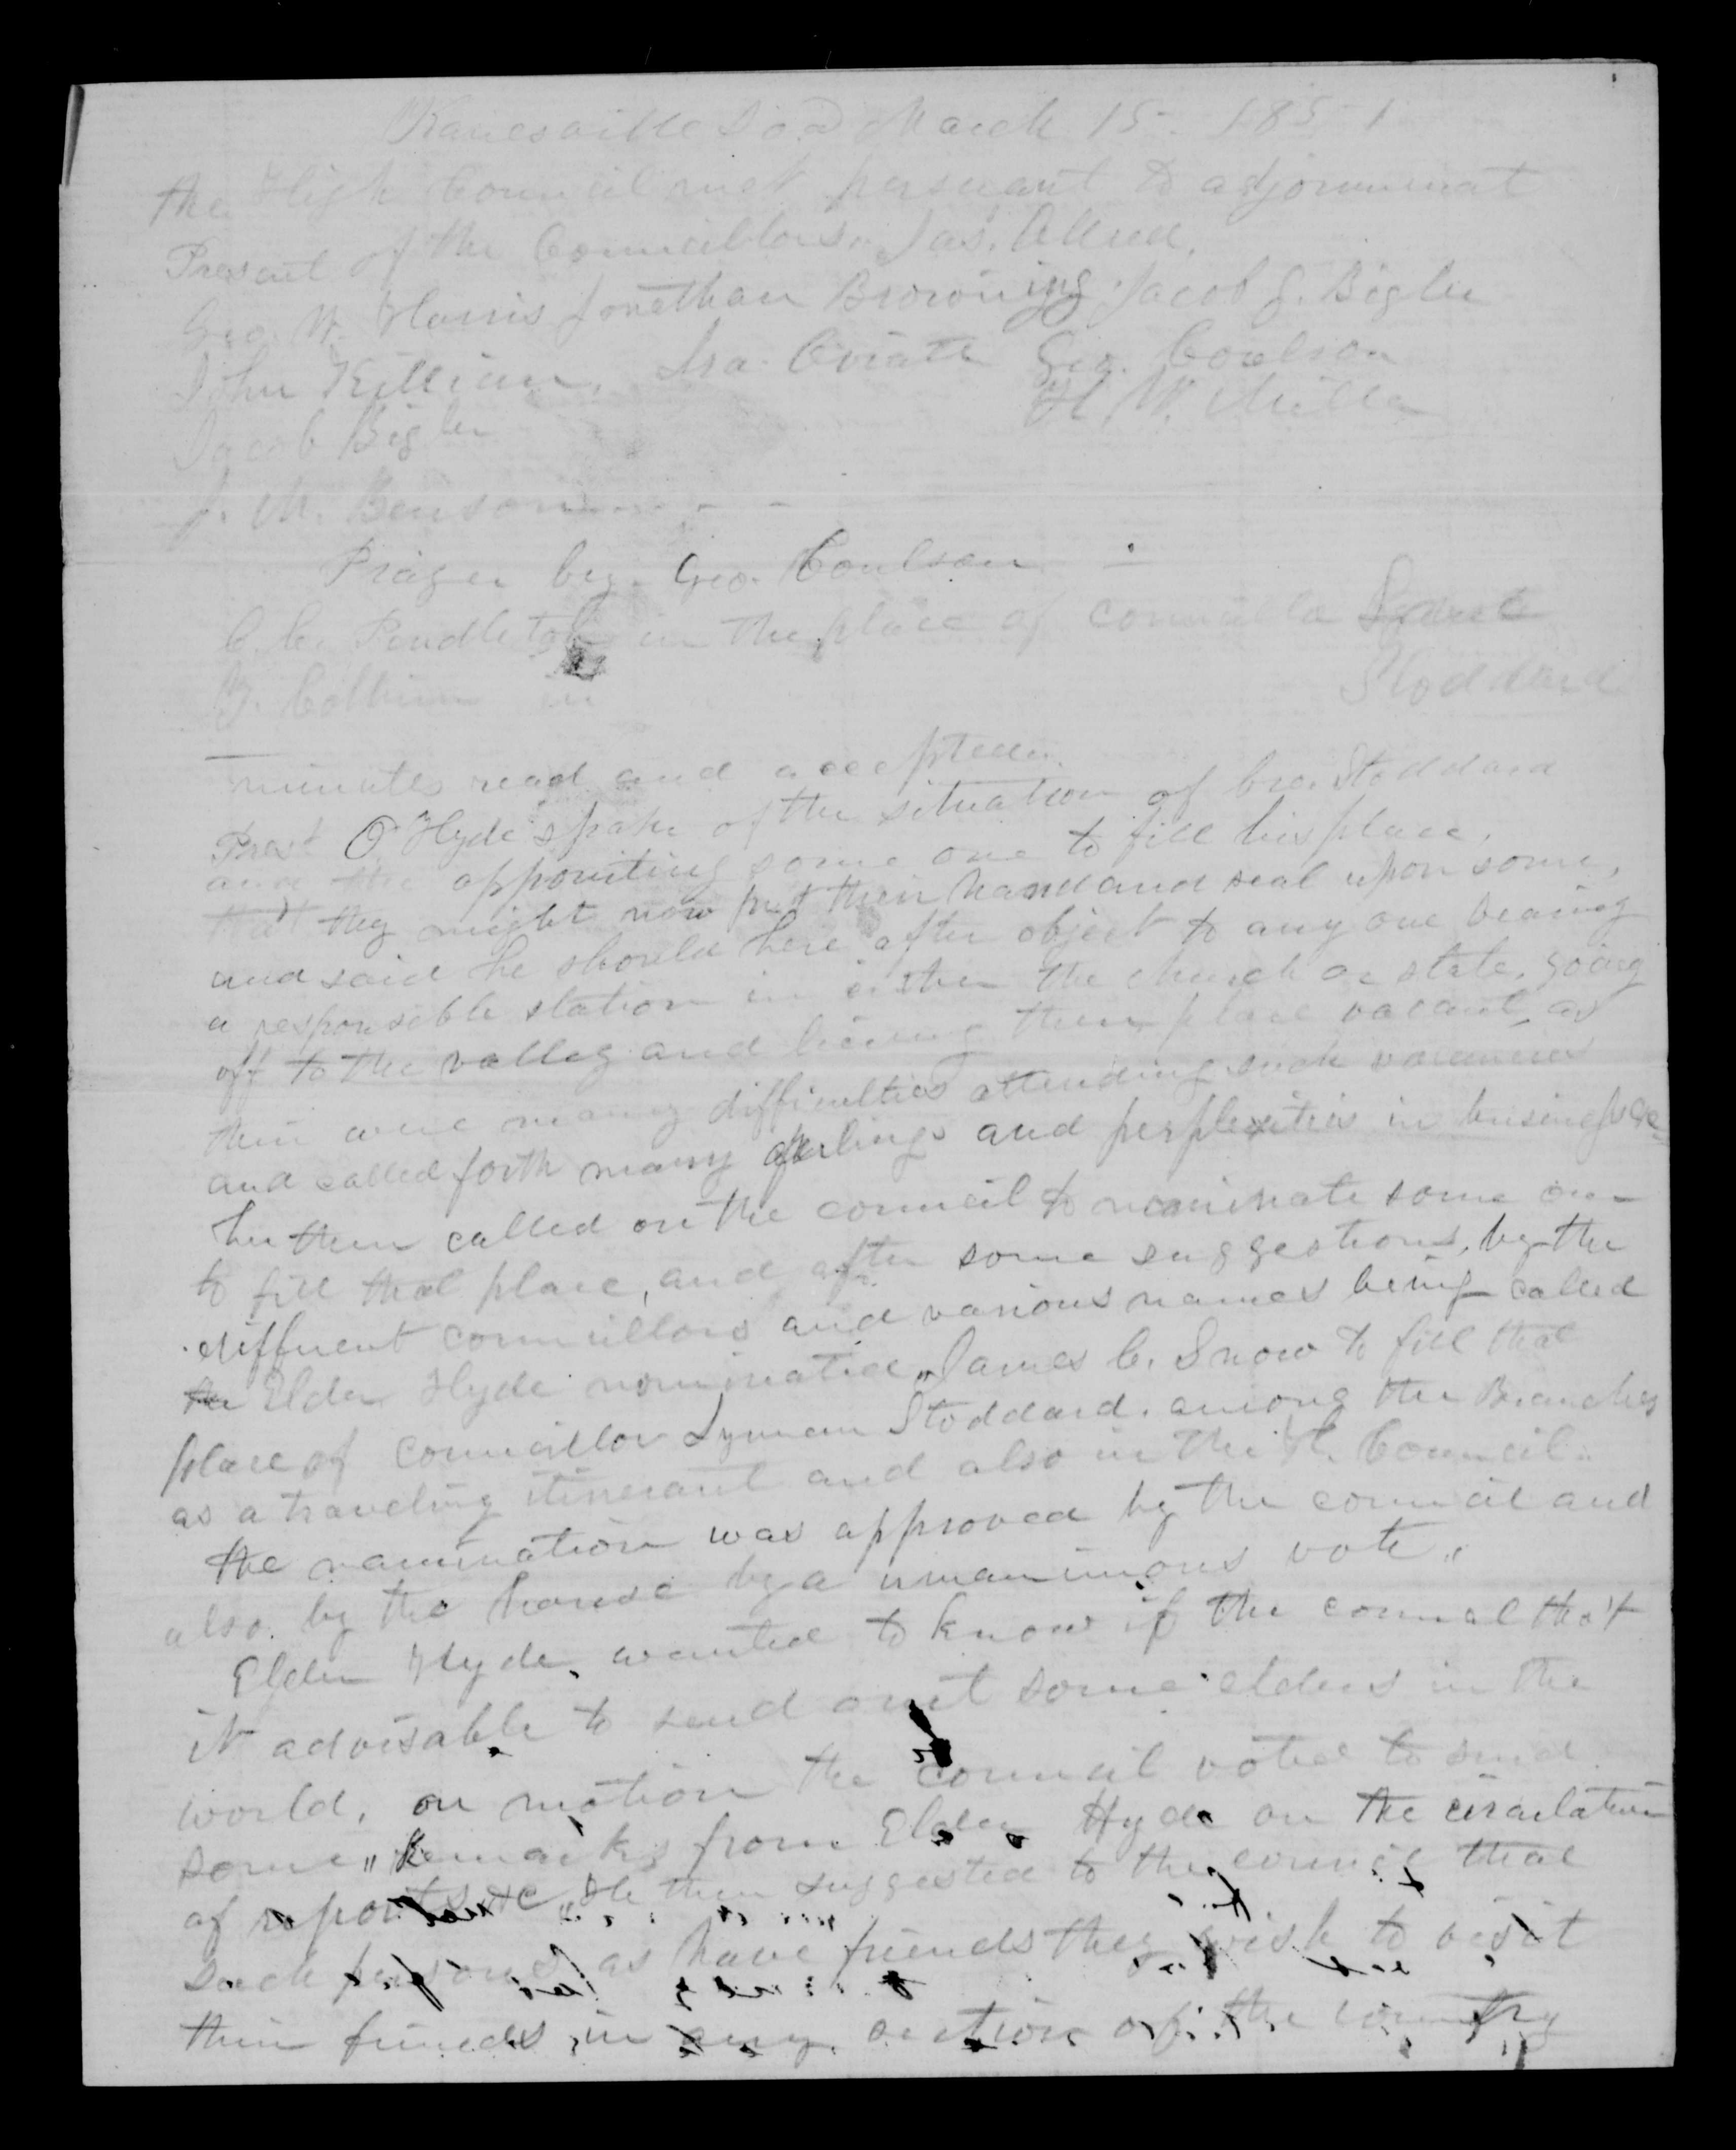 Kanesville Iowa March 15 - 1851
the High Council met persuant to adjournment
Present of the Councillors. Jas. Allred,
Geo. W. Harris Jonathan Browning Jacob G. Bigler
John Killian, Ira Oviatt Geo. Coulson
H. W. Miller
Jacob Bigler
J. M. Benson
Prayer by Geo. Coulson
C. C. Pendleton in the place of councillor
Z. Colburn in Stoddard
minutes read and accepted.
Prest O Hyde spake of the situation of bro. Stoddard
and the appointing some one to fill his place,
that they might now put their hand and seal upon some,
and said he should here after object to any one bearing
a responsible station in either the church or state, going
off to the valley and leeving their place vacant, as
their were many difficulties attending such vacancies
and called forth many feelings and perplexities in business &c
he then called on the council to nominate some one
to fill that place, and after some suggestions, by the
different councillors and various names being called
the Elder Hyde nominated James C. Snow to fill that
place of councillor Lyman Stoddard. among the Branches
as a traveling itinerant and also in the H. Council.
the namination was approved by the council and
also by the house by a unanimous vote.
Elder Hyde. wanted to know if the council that
it advisable to send out some elders in the
world, on motion the council voted to send
some Remarks from Elder Hyde on the circulation
of reports &c He then suggested to the council that
such persons as have friends they wish to visit
their friends in any section of the country